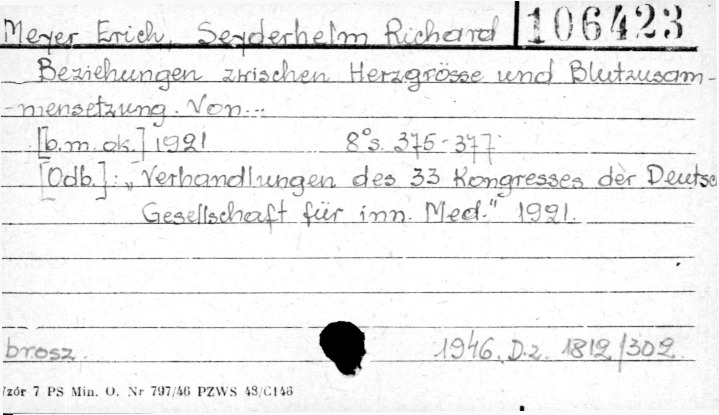 Meyer Erich, Seyderhelm Richard 106423
Beziehungen zwischen Herzgrösse und Blutzusam-
-mensetzung. Von...
[b.m. ok.] 1921 8° s. 375-377.
[Odb.]: „Verhandlungen des 33 Kongresses der Deutsc
Gesellschaft für inn. Med." 1921.
brosz. 1946. D.z. 1812/302.
Wzór 7 PS Min. O. Nr 797/46 PZWS 43/C146